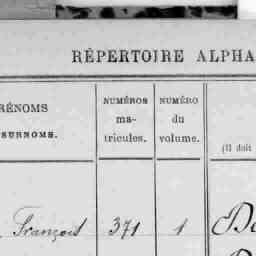 RÉPERTOIRE ALPHA
RÉNOMS
SURNOMS.
NUMÉROS
ma-
tricules.
NUMÉRO
du
volume.
(Il doit
François 371 1